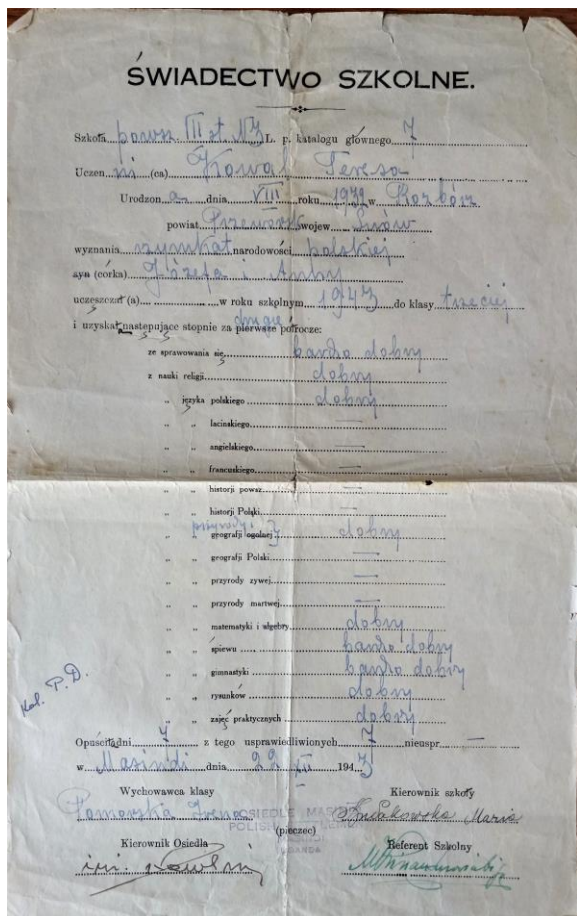 ŚWIADECTWO SZKOLNE.
Szkoła powsz III st. N3 L. p. katalogu głównego 7
Uczen ni (ca) Kowal Teresa
Urodzon a dnia VIII roku 1932 w Rozbórz
powiat Przeworsk wojew Lwów
wyznania rzymkat narodowości polskiej
syn (córka) Józefa i Anny
uczęszczał (a) w roku szkolnym 1943 do klasy trzeciej
drugie
i uzyskał następujące stopnie za pierwsze półrocze:
ze sprawowania się bardzo dobry
z nauki religji dobry
„ języka polskiego dobry
„ „ lacinskiego —
„ „ angielskiego —
„ „ francuskiego —
„ „ historji powsz —
„ „ historji Polski —
przyrody i
„ „ geografji ogolnej dobry
„ „ geografji Polski —
„ „ przyrody zywej —
„ „ przyrody martwej —
„ „ matematyki i algebry dobry
„ „ śpiewu bardzo dobry
„ „ gimnastyki bardzo dobry
Kal. P. D.
„ „ rysunków dobry
„ „ zajęć praktycznych dobry
Opuścił dni 7 z tego usprawiedliwionych 7 nieuspr —
w Masindi dnia 22 XII 1943
Wychowawca klasy Kierownik szkoły
Pomorska Irena Maria
OSIEDLE
POLISH
(pieczec)
UGANDA
Kierownik Osiedla Referent Szkolny
inż.